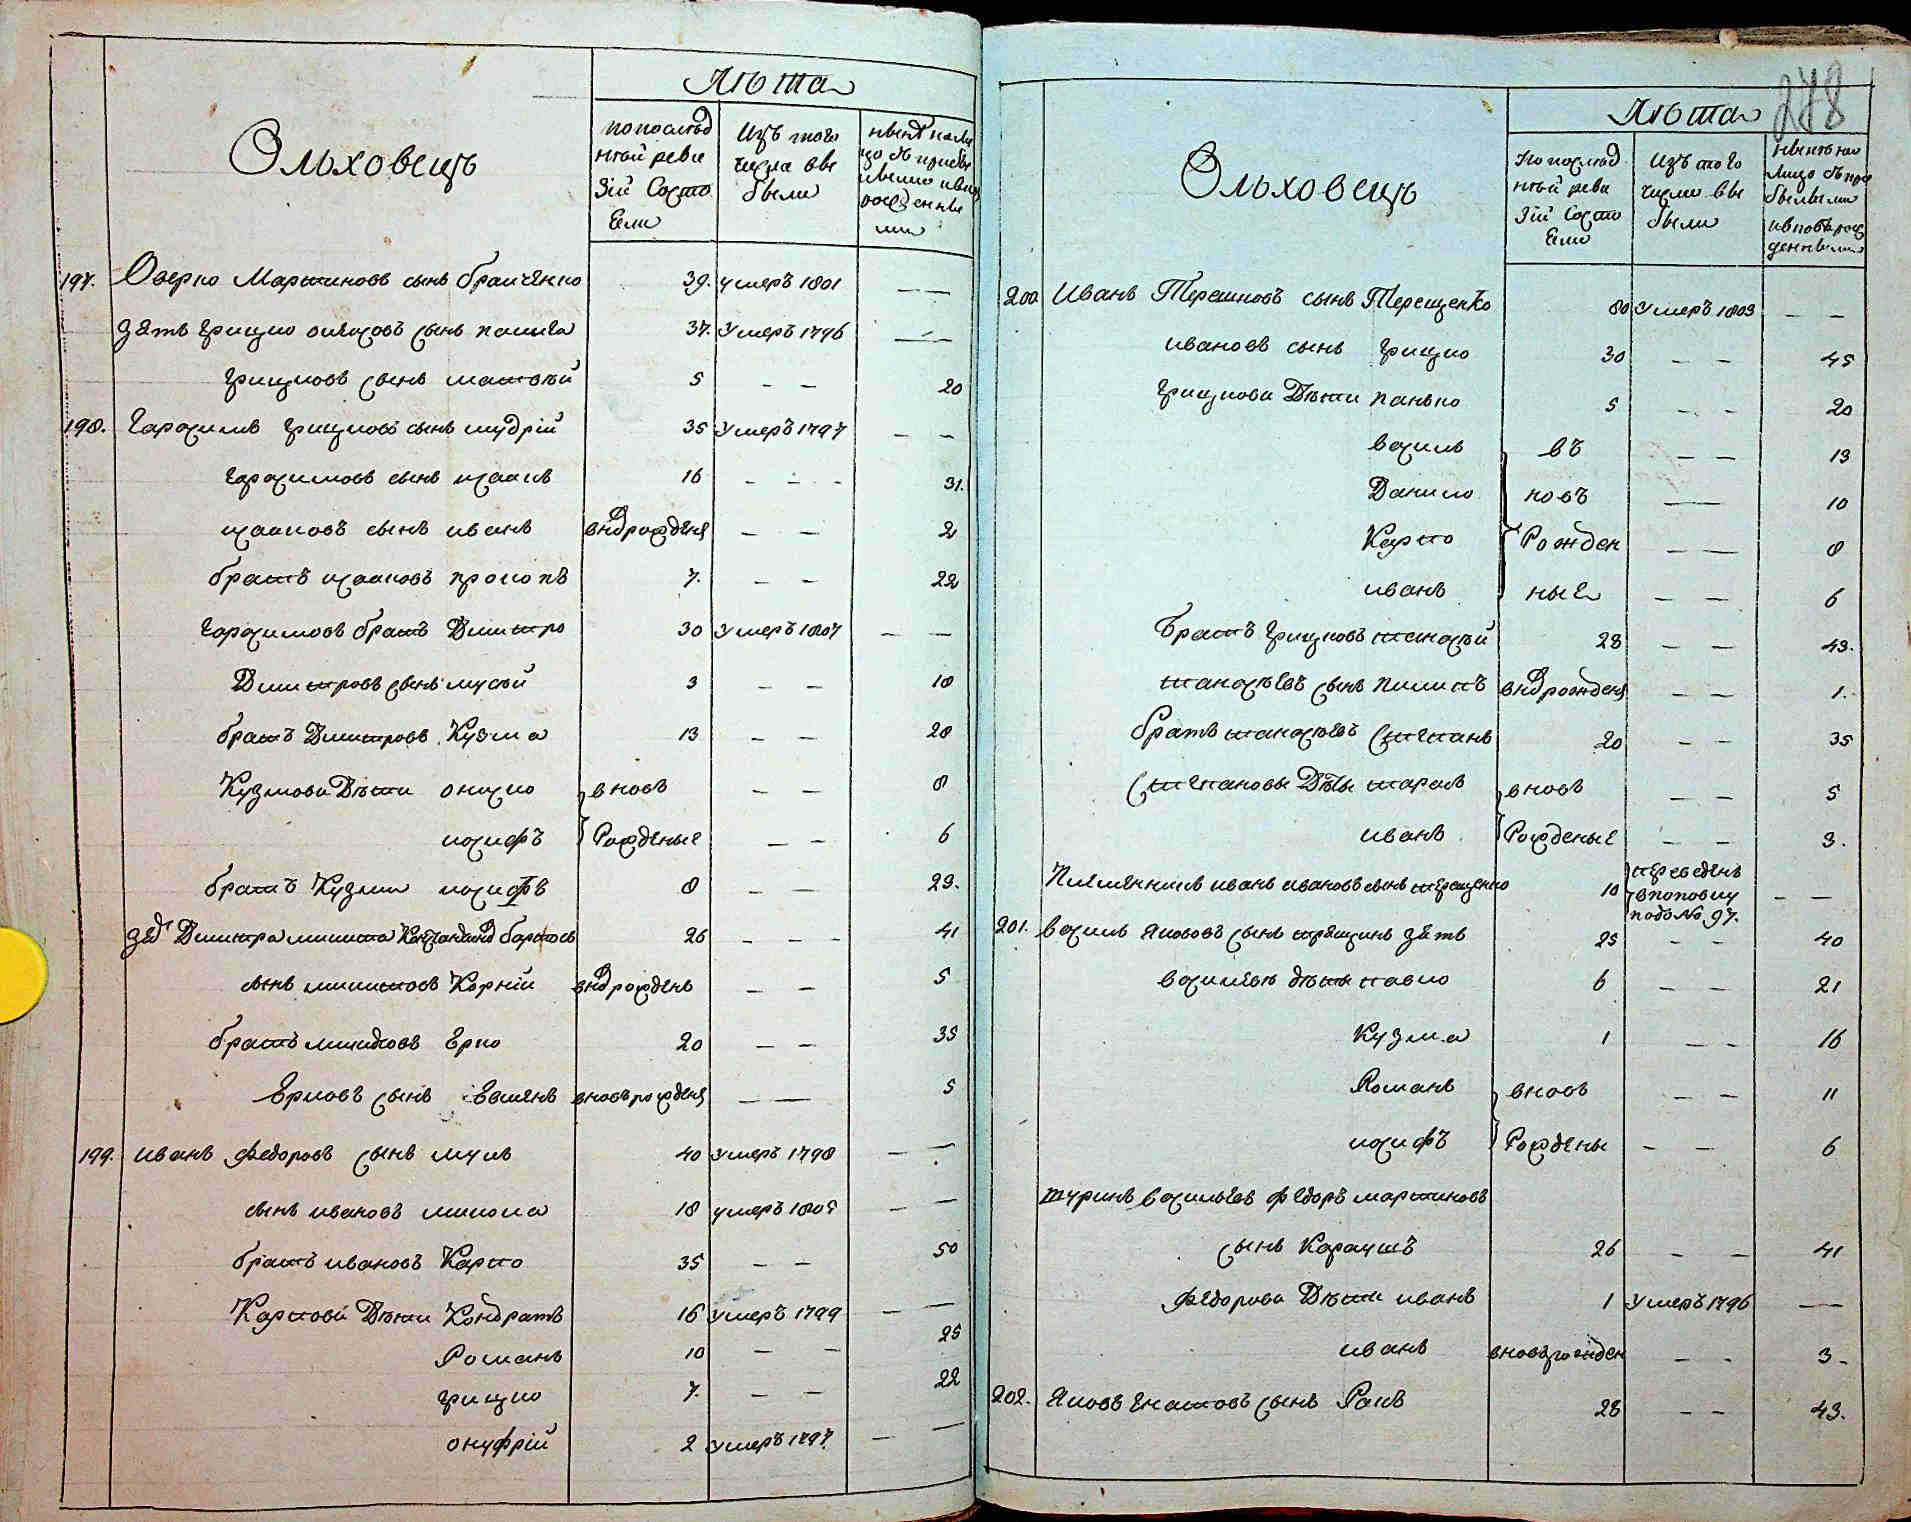 Ольховецъ
Лѣта
по послѣд
нѣй реви
зіи состо
яли
изъ того
числа вы
были
197. Оверко Мартиновъ сынъ 39. умеръ 1801 — —
зять Грицко сынъ 37. Умеръ 1796 — —
Грицковъ сынъ матвѣй 5 — — 20
198. Гарасимъ Грицковъ сынъ мудрій 35 Умеръ 1797 — —
Гарасимовъ сынъ исаакъ 16 — — — 31.
исааковъ сынъ иванъ — — 2
братъ исааковъ прокопъ 7. — — 22
Гарасимовъ братъ Дмитро 30 Умеръ 1807 — —
Дмитровъ сынъ мусѣй 3 — — 18
братъ Дмитровъ Кузма 13 — — 28
Кузмови Дѣти ониско вновъ — — 8
иосифъ Рожденые — — 6
братъ Кузми иосифъ 8 — — 23.
Дмитра микита 26 — — — 41
сынъ микитовъ Корній — — 5
братъ микитовъ Ярко 20 — — 35
Ярковъ сынъ вновърожденъ — — 5
199. иванъ Федоровъ сынъ 40 умеръ 1798 — —
сынъ ивановъ микола 18 умеръ 1805 — —
братъ ивановъ Карпо 35 — — 50
Карпови Дѣти Кондратъ 16 умеръ 1799 — —
Романъ 10 — — 25
грицко 7. — — 22
онуфрій 2 умеръ 1797. — —
278
Ольховецъ
Лѣта
По послѣд
нѣй реви
зіи состо
яли
Изъ того
числа вы
были
нынѣ на
лицо съ при
былыми
и новорож
денными
200 Иванъ Терешковъ сынъ Терещенко 80 Умеръ 1803 — —
ивановъ сынъ грицко 30 — — 45
грицкови Дѣти панько 5 — — 20
василь въ — — 13
Данило новъ — — 10
Карпо Рожден — — 8
иванъ ные — — 6
Братъ грицковъ танасѣй 28 — — 43.
танасѣевъ сынъ пилипъ — — 1.
братъ танасѣевъ Степанъ 20 — — 35
Степановы Дѣты тарасъ вновъ — — 5
иванъ Рожденые — — 3.
Племенникъ иванъ ивановъ сынъ терещенко 10 переведенъ
в поповку
подъ № 97. — —
201. василь якововъ сынъ зять 25 — — 40
дѣти павло 6 — — 21
Кузма 1 — — 16
Романъ вновъ — — 11
иосифъ Рождены — — 6
шуринъ васильевъ федоръ мартиновъ
сынъ Караушъ 26 — — 41
федорови Дѣти иванъ 1 Умеръ 1796 — —
иванъ вновърожден — — 3.
202. Яковъ Игнатовъ сынъ Ракъ 28 — — 43.